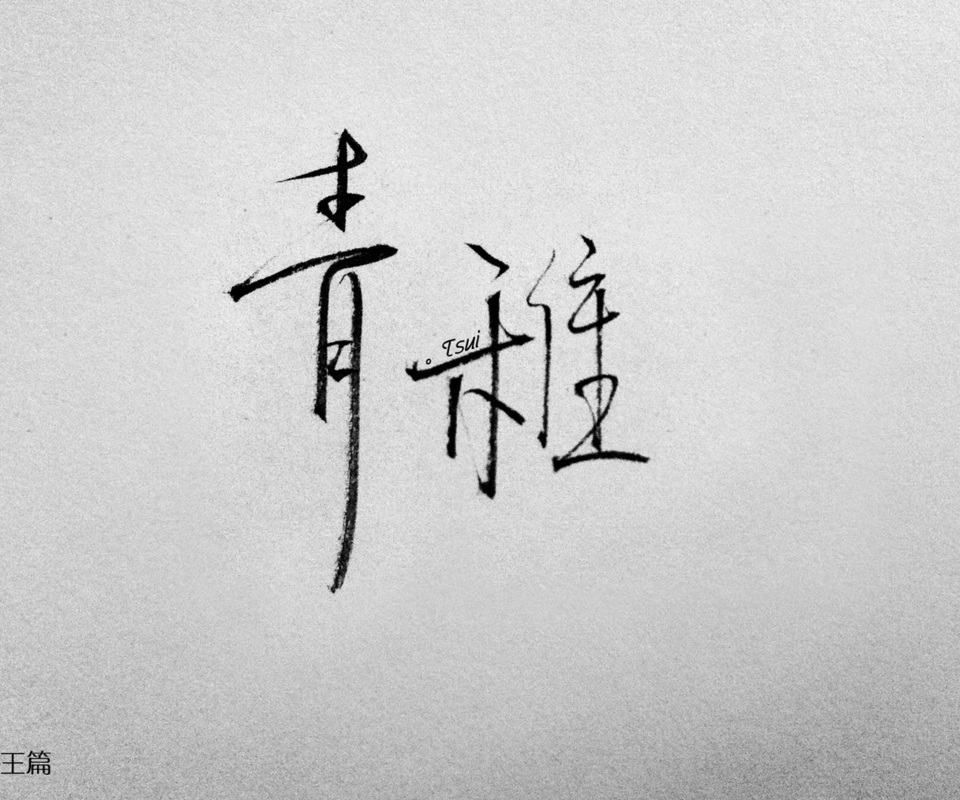 青稚
。Tsui
王篇